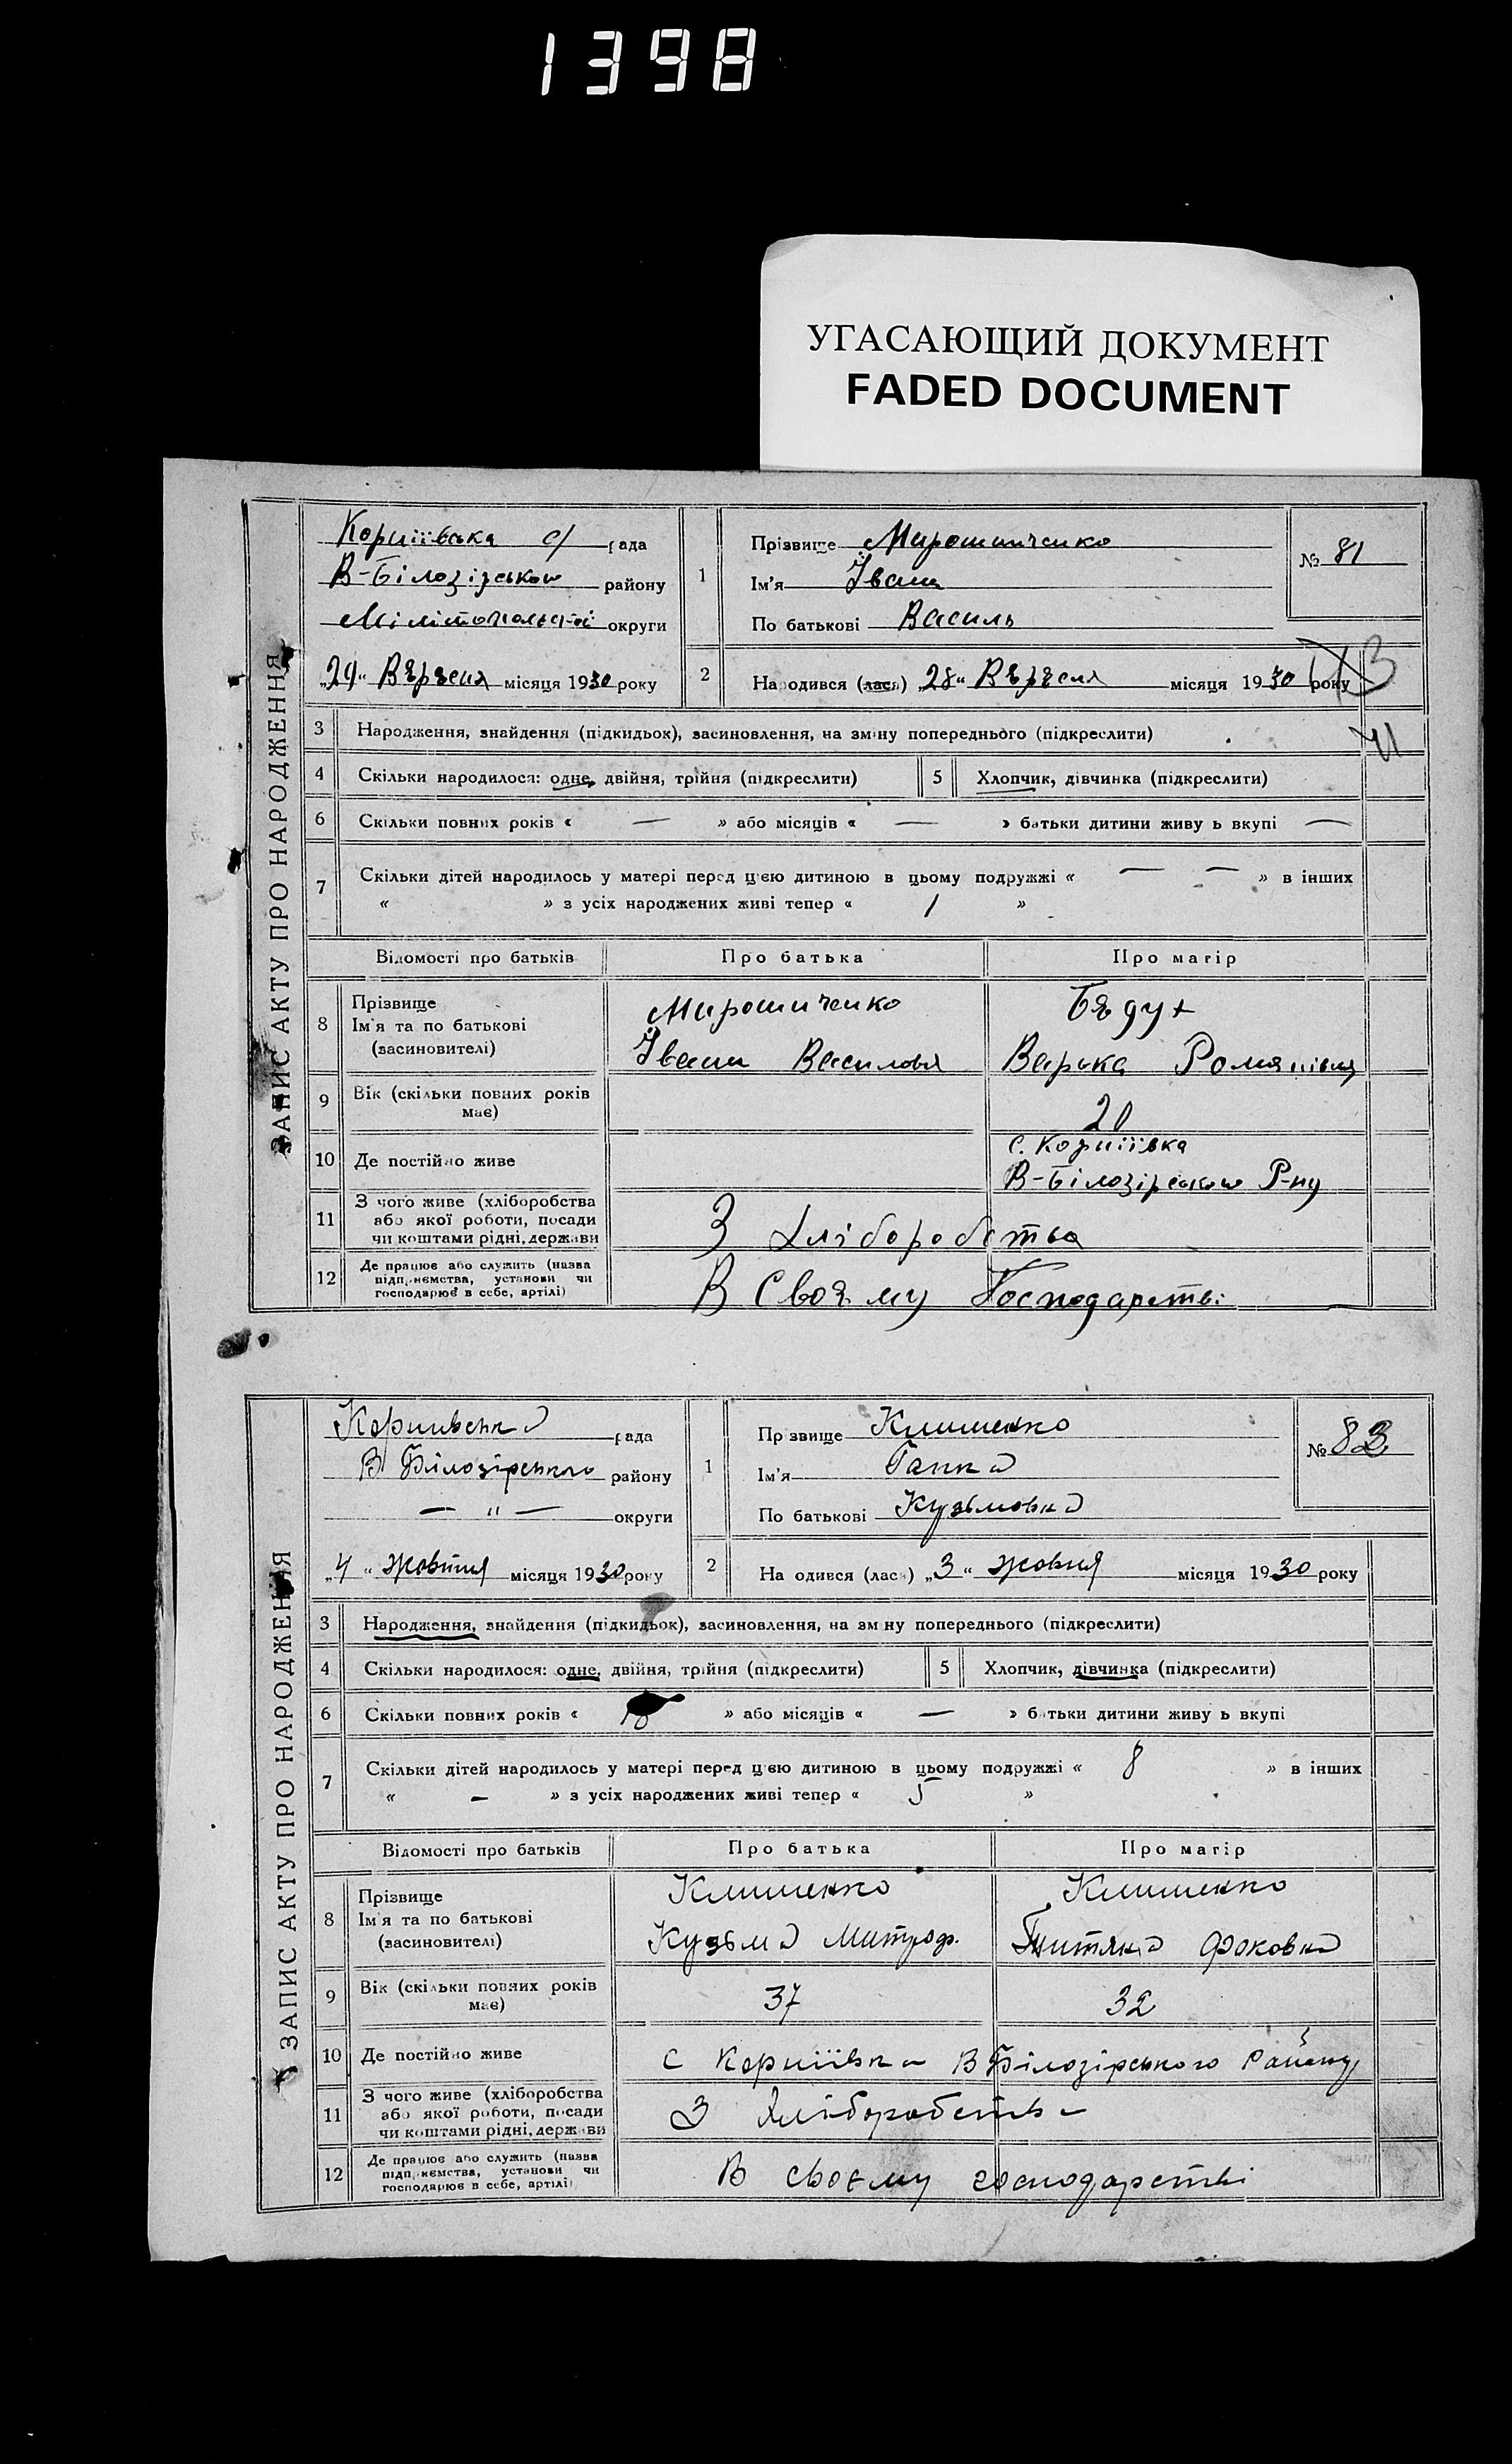 1398
УГАСАЮЩИЙ ДОКУМЕНТ
FADED DOCUMENT
ЗАПИС АКТУ ПРО НАРОДЖЕННЯ
Корніївська с/ рада
В-Білозірськои району
Мілітопольської округи
„29“ Вересня місяця 1930 року
1
Прізвище Мирошниченко
Ім'я Іван
По батькові Василь
№ 81
2
Народився (лася) „28“ Вересня місяця 1930 року
3 Народження, знайдення (підкидьок), засиновлення, на зміну попереднього (підкреслити)
4 Скільки народилося: одне, двійня, трійня (підкреслити) 5 Хлопчик, дівчинка (підкреслити)
6 Скільки повних років « — » або місяців « — » батьки дитини живу ь вкупі —
7 Скільки дітей народилось у матері перед цією дитиною в цьому подружжі « — — » в інших
« » з усіх народжених живі тепер « 1 »
Відомості про батьків Про батька Про матір
8 Прізвище
Ім'я та по батькові
(засиновителі)
Мирошниченко
Іван Василовя
Бядух
Варька Романівня
9 Вік (скільки повних років має)
20
10 Де постійно живе
с. Корніївка
В-Білозірськои Р-ну
11 З чого живе (хліборобства
або якої роботи, посади
чи коштами рідні, держави
З хліборобства
12 Де працює або служить (назва
підприємства, установи чи
господарює в себе, артілі)
В Своя му Господарстві
ЗАПИС АКТУ ПРО НАРОДЖЕННЯ
Корнивська рада
В Білозірського району
— " — округи
„4“ жовтня місяця 1930 року
1
Пр звище Клименко
Ім'я Ганна
По батькові Кузьмовна
№ 83
2
На одився (лася) „3“ жовня місяця 1930 року
3 Народження, знайдення (підкидьок), засиновлення, на зм ну попереднього (підкреслити)
4 Скільки народилося: одне, двійня, трійня (підкреслити) 5 Хлопчик, дівчинка (підкреслити)
6 Скільки повних років « » або місяців « — » батьки дитини живу ь вкупі
7 Скільки дітей народилось у матері перед цією дитиною в цьому подружжі « 8 » в інших
« — » з усіх народжених живі тепер « 5 »
Відомості про батьків Про батька Про матір
8 Прізвище
Ім'я та по батькові
(засиновителі)
Клименко
Кузьма Митроф.
Клименко
Титяна Фоковна
9 Вік (скільки повних років має)
37
32
10 Де постійно живе
с Корніївка В Білозірського Району
11 З чого живе (хліборобства
або якої роботи, посади
чи коштами рідні, держави
З хліборобства
12 Де працює або служить (назва
підприємства, установи чи
господарює в себе, артілі)
В своєму господарстві